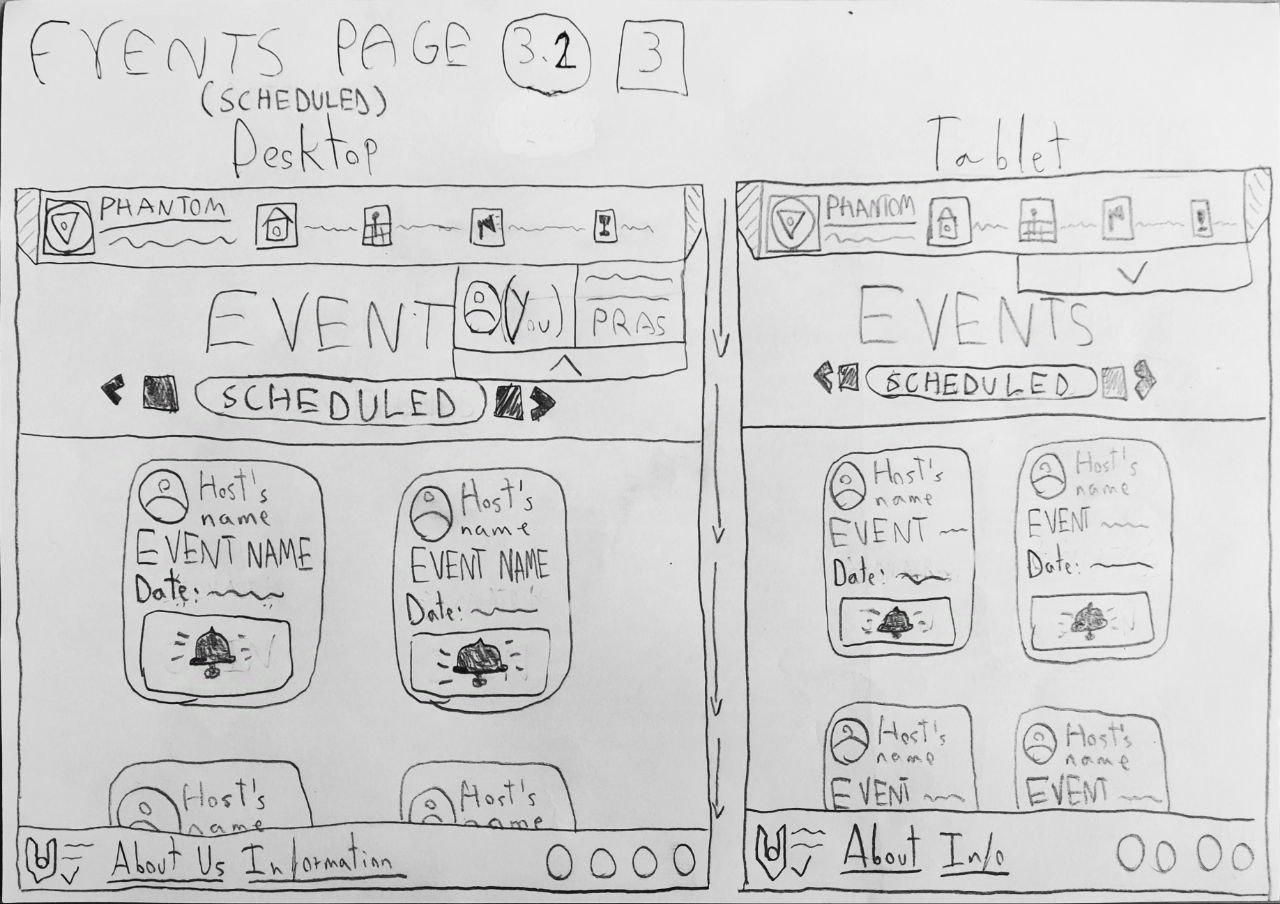 EVENTS PAGE 3.2 3
(SCHEDULED)
Desktop
PHANTOM
EVENT
(You)
PRAS
SCHEDULED
Host's
name
EVENT NAME
Date:
Host's
name
EVENT NAME
Date:
Host's
name
Host's
name
About Us Information
Tablet
PHANTOM
EVENTS
SCHEDULED
Host's
name
EVENT
Date:
Host's
name
EVENT
Date:
Host's
name
EVENT
Host's
name
EVENT
About Info